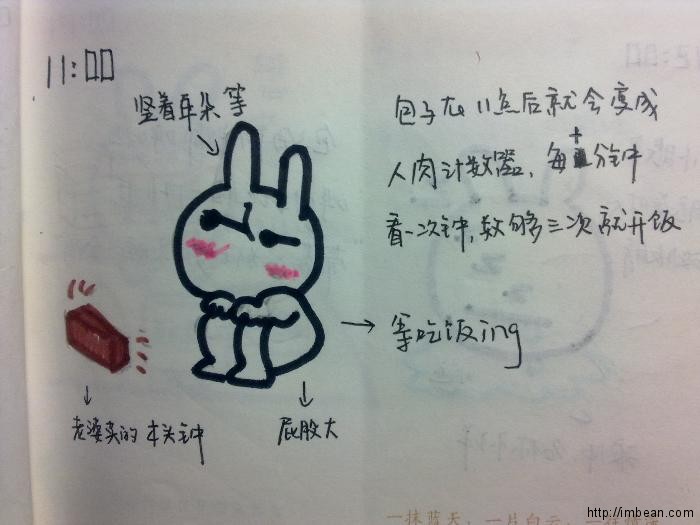 11:00
竖着耳朵等
包子在11点后就会变成
人肉计数器,每十分钟
看一次钟,数够三次就开饭
等吃饭ing
老婆买的木头钟
屁股大
一抹蓝天,一片白云
http://imbean.com